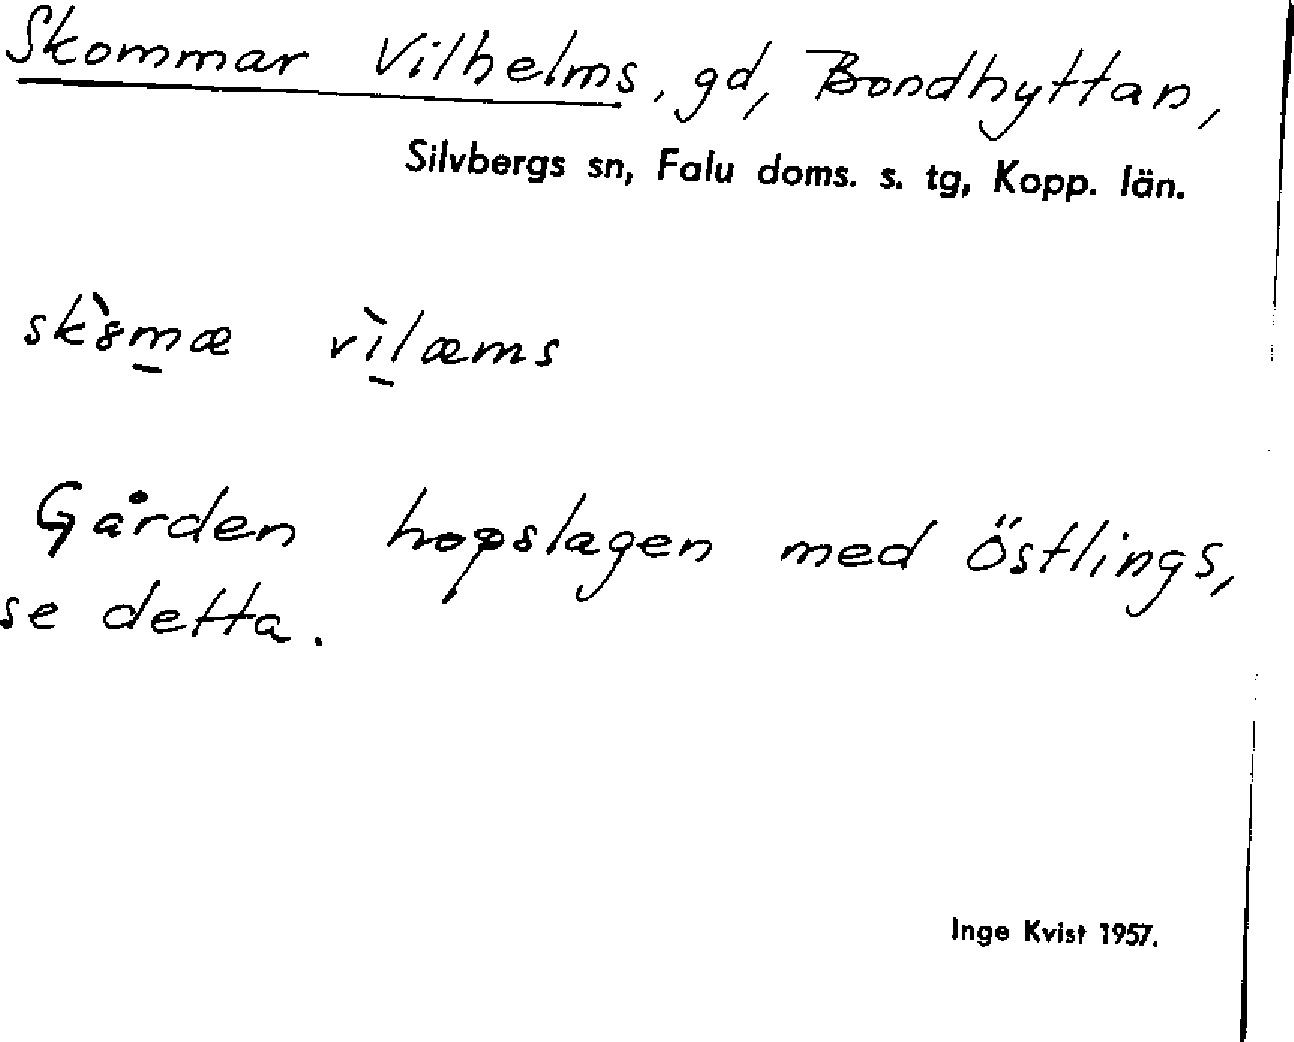 Skommar Vilhelms, gd, Bondhyttan,
Silvbergs sn, Falu doms. s. tg, Kopp. län.
sk8̀m̲æ vì̲læms
Gården hopslagen med Östlings,
se detta.
Inge Kvist 1957.